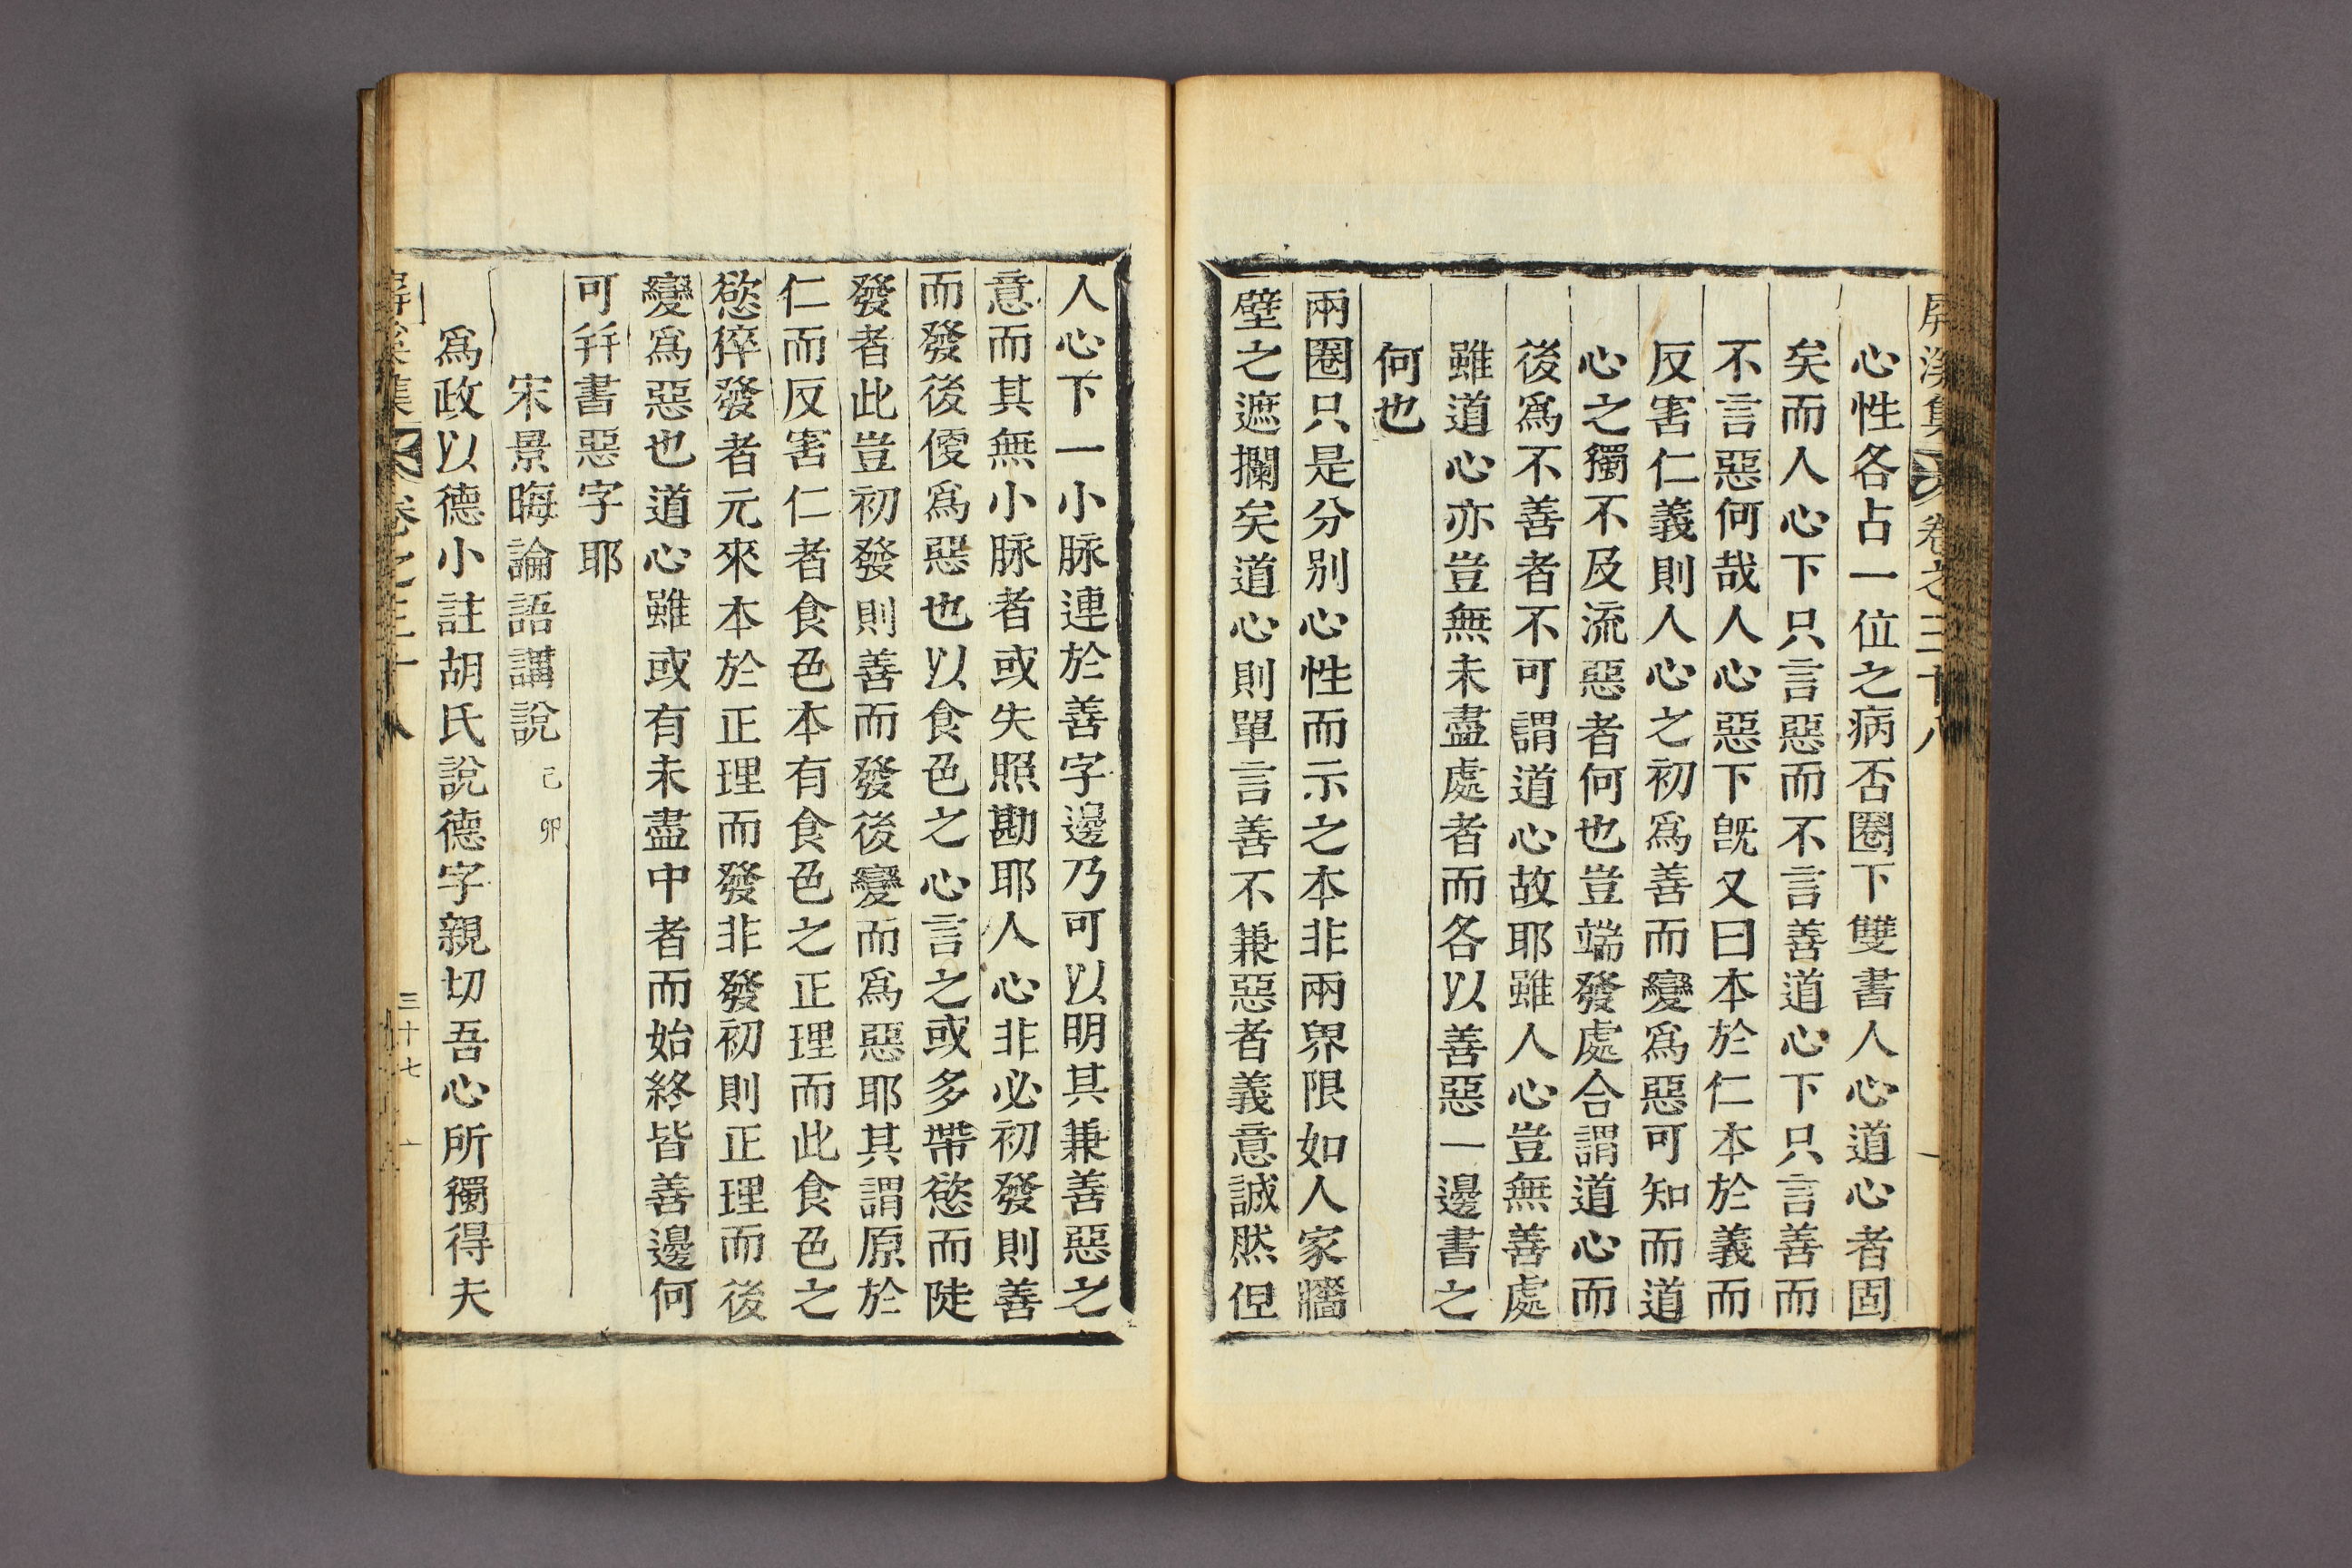 屏溪集 卷之三十八
心性各占一位之病否圈下雙書人心道心者固
矣而人心下只言惡而不言善道心下只言善而
不言惡何哉人心惡下旣又曰本於仁本於義而
反害仁義則人心之初爲善而變爲惡可知而道
心之獨不及流惡者何也豈端發處合謂道心而
後爲不善者不可謂道心故耶雖人心豈無善處
雖道心亦豈無未盡處者而各以善惡一邊書之
何也
兩圈只是分別心性而示之本非兩界限如人家牆
壁之遮攔矣道心則單言善不兼惡者義意誠然但
人心下一小脉連於善字邊乃可以明其兼善惡之
意而其無小脉者或失照勘耶人心非必初發則善
而發後便爲惡也以食色之心言之或多帶慾而陡
發者此豈初發則善而發後變而爲惡耶其謂原於
仁而反害仁者食色本有食色之正理而此食色之
慾猝發者元來本於正理而發非發初則正理而後
變爲惡也道心雖或有未盡中者而始終皆善邊何
可幷書惡字耶
宋景晦論語講說 己卯
爲政以德小註胡氏說德字親切吾心所獨得夫
屏溪集 卷之三十八 三十七